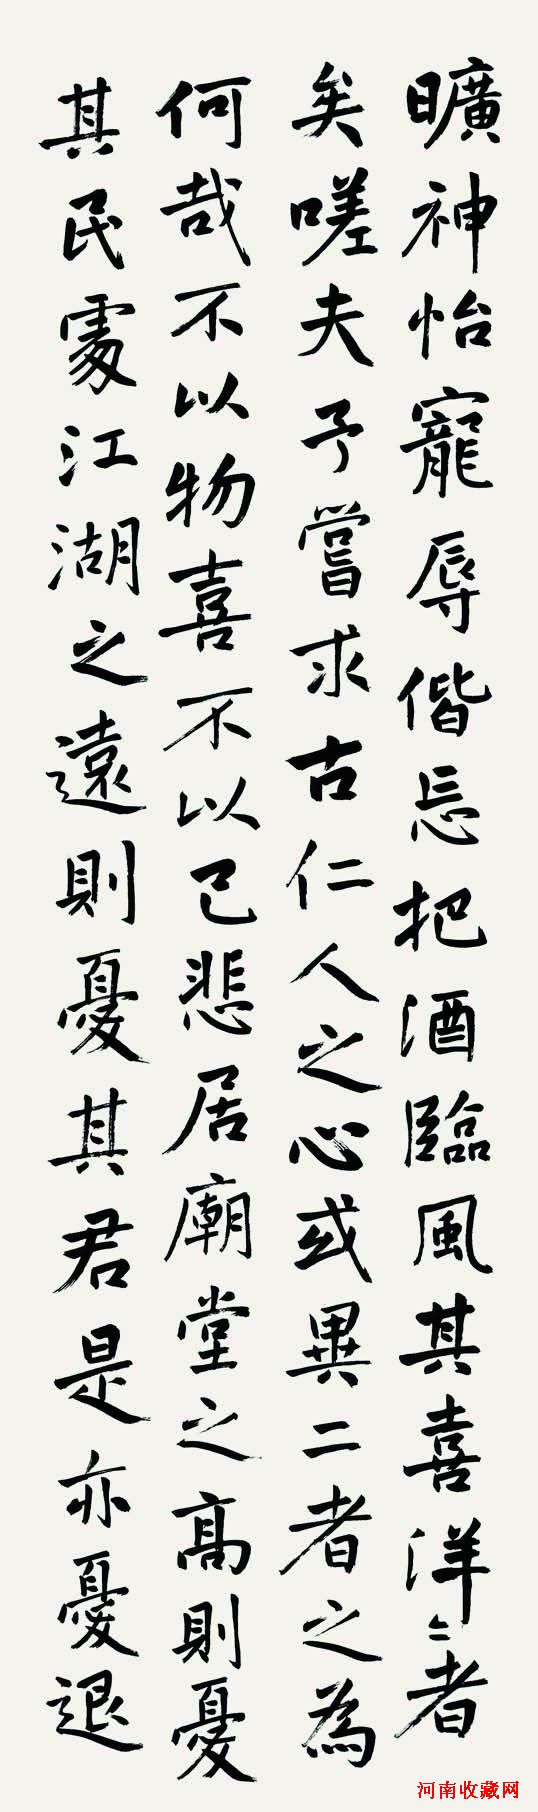 曠神怡寵辱偕忘把酒臨風其喜洋〻者
矣嗟夫予嘗求古仁人之心或異二者之為
何哉不以物喜不以己悲居廟堂之高則憂
其民處江湖之遠則憂其君是亦憂退
河南收藏网